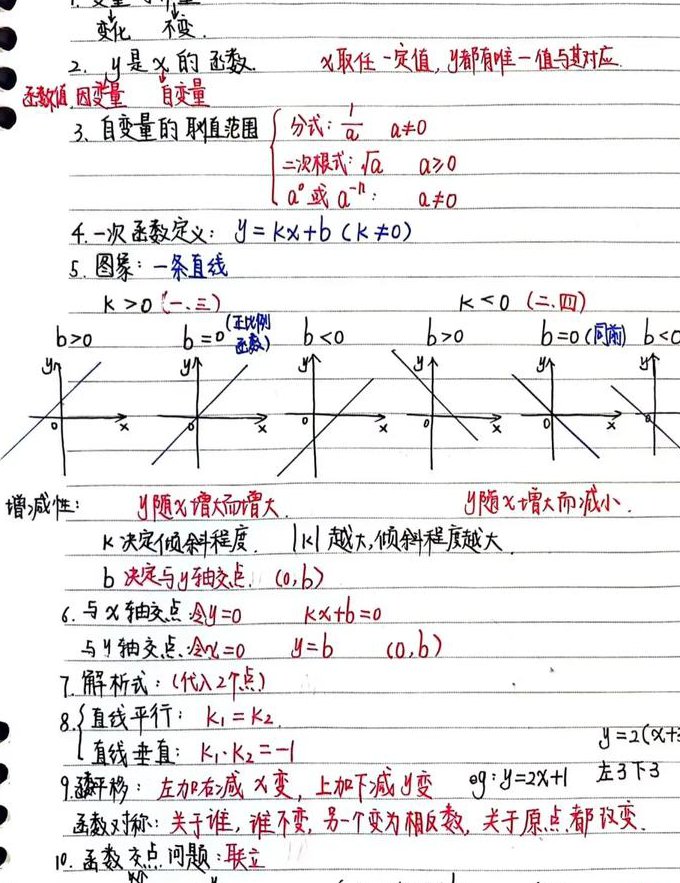 变化 不变.
2. y是x的函数. x取任一定值,y都有唯一值与其对应.
函数值.因变量 自变量
3、自变量的取值范围
分式: 1/a a≠0
二次根式: √a a≥0
a⁰或a⁻ⁿ: a≠0
4.一次函数定义: y=kx+b (k≠0)
5. 图象: 一条直线
k>0 (一.三) k<0 (二.四)
b>0 b=0 (正比例函数) b<0 b>0 b=0 (同前) b<0
y y y y y
0 x 0 x 0 x 0 x 0 x 0
增减性: y随x增大而增大. y随x增大而减小.
k决定倾斜程度. |k|越大,倾斜程度越大.
b决定与y轴交点. (0,b)
6.与x轴交点:令y=0 kx+b=0
与y轴交点:令x=0 y=b (0,b)
7.解析式:(代入2个点)
8.直线平行: k₁=k₂.
直线垂直: k₁·k₂=-1
y=2(x+3
9.平移: 左加右减x变,上加下减y变 eg:y=2x+1 左3下3
函数对称: 关于谁,谁不变,另一个变为相反数,关于原点都改变.
10.函数交点问题:联立